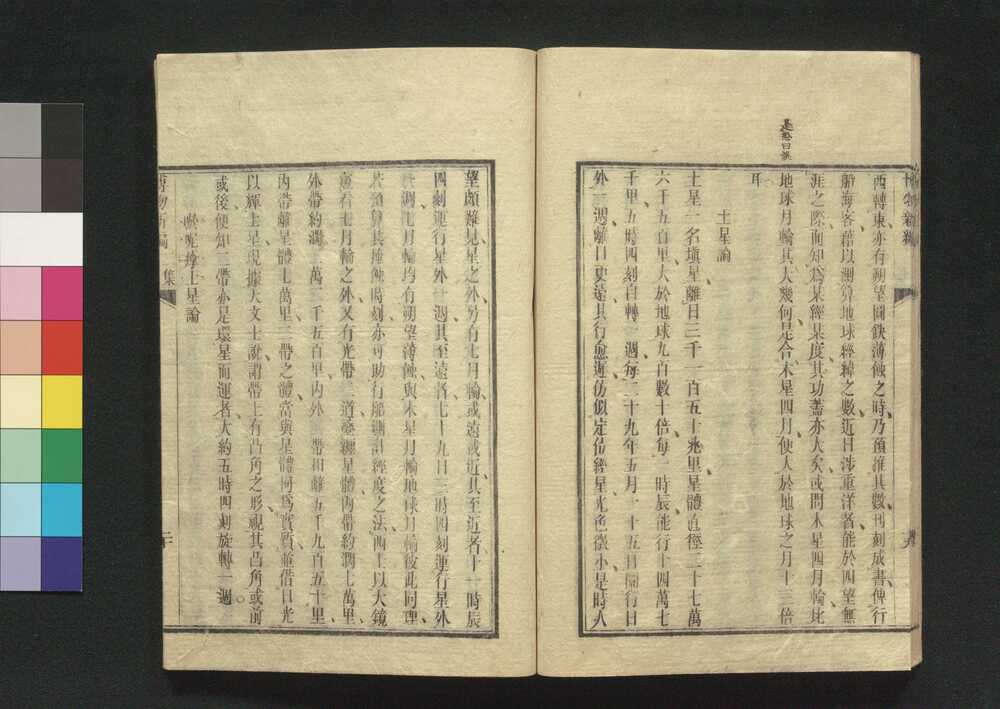 西轉東、亦有朔望圓缺薄蝕之時、乃預推其數、刊刻成書、俾行
船海客、藉以測算地球經緯之數、近日涉重洋者、能於四望無
涯之際、而知為某經某度、其功蓋亦大矣、或問木星四月輪、比
地球月輪、其大幾何、是合木星四月、便大於地球之月十三倍
耳。
土星論
土星一名塡星、離日三千一百五十兆里、星體直徑二十七萬
六千五百里、大於地球九百數十倍、每一時辰、能行十四萬七
千里、五時四刻自轉一週、每二十九年五月二十五日、圜行日
外一週、離日更遠、其行愈遲、彷似定位經星、光色微小、是時人
望頗難見、星之外、另有七月輪、或遠或近、其至近者十一時辰
四刻運行星外一週、其至遠者七十九日三時四刻運行星外
一週、七月輪均有朔望薄蝕、與木星月輪地球月輪彼此同理、
若預算其掩蝕時刻、亦可助行船測計經度之法、西士以大鏡
窺看七月輪之外、又有光帶二道、環繞星體、內帶約濶七萬里、
外帶約濶二萬三千五百里、內外二帶相離五千九百五十里、
內帶離星體七萬里、二帶之體、當與星體同為實質、並借日光
以輝土星、現據天文士說、謂帶上有凸角之形、視其凸角或前
或後、便知二帶亦是環星而運者、大約五時四刻旋轉一週。
呶呢㘔士星論
博物新編二集
二十